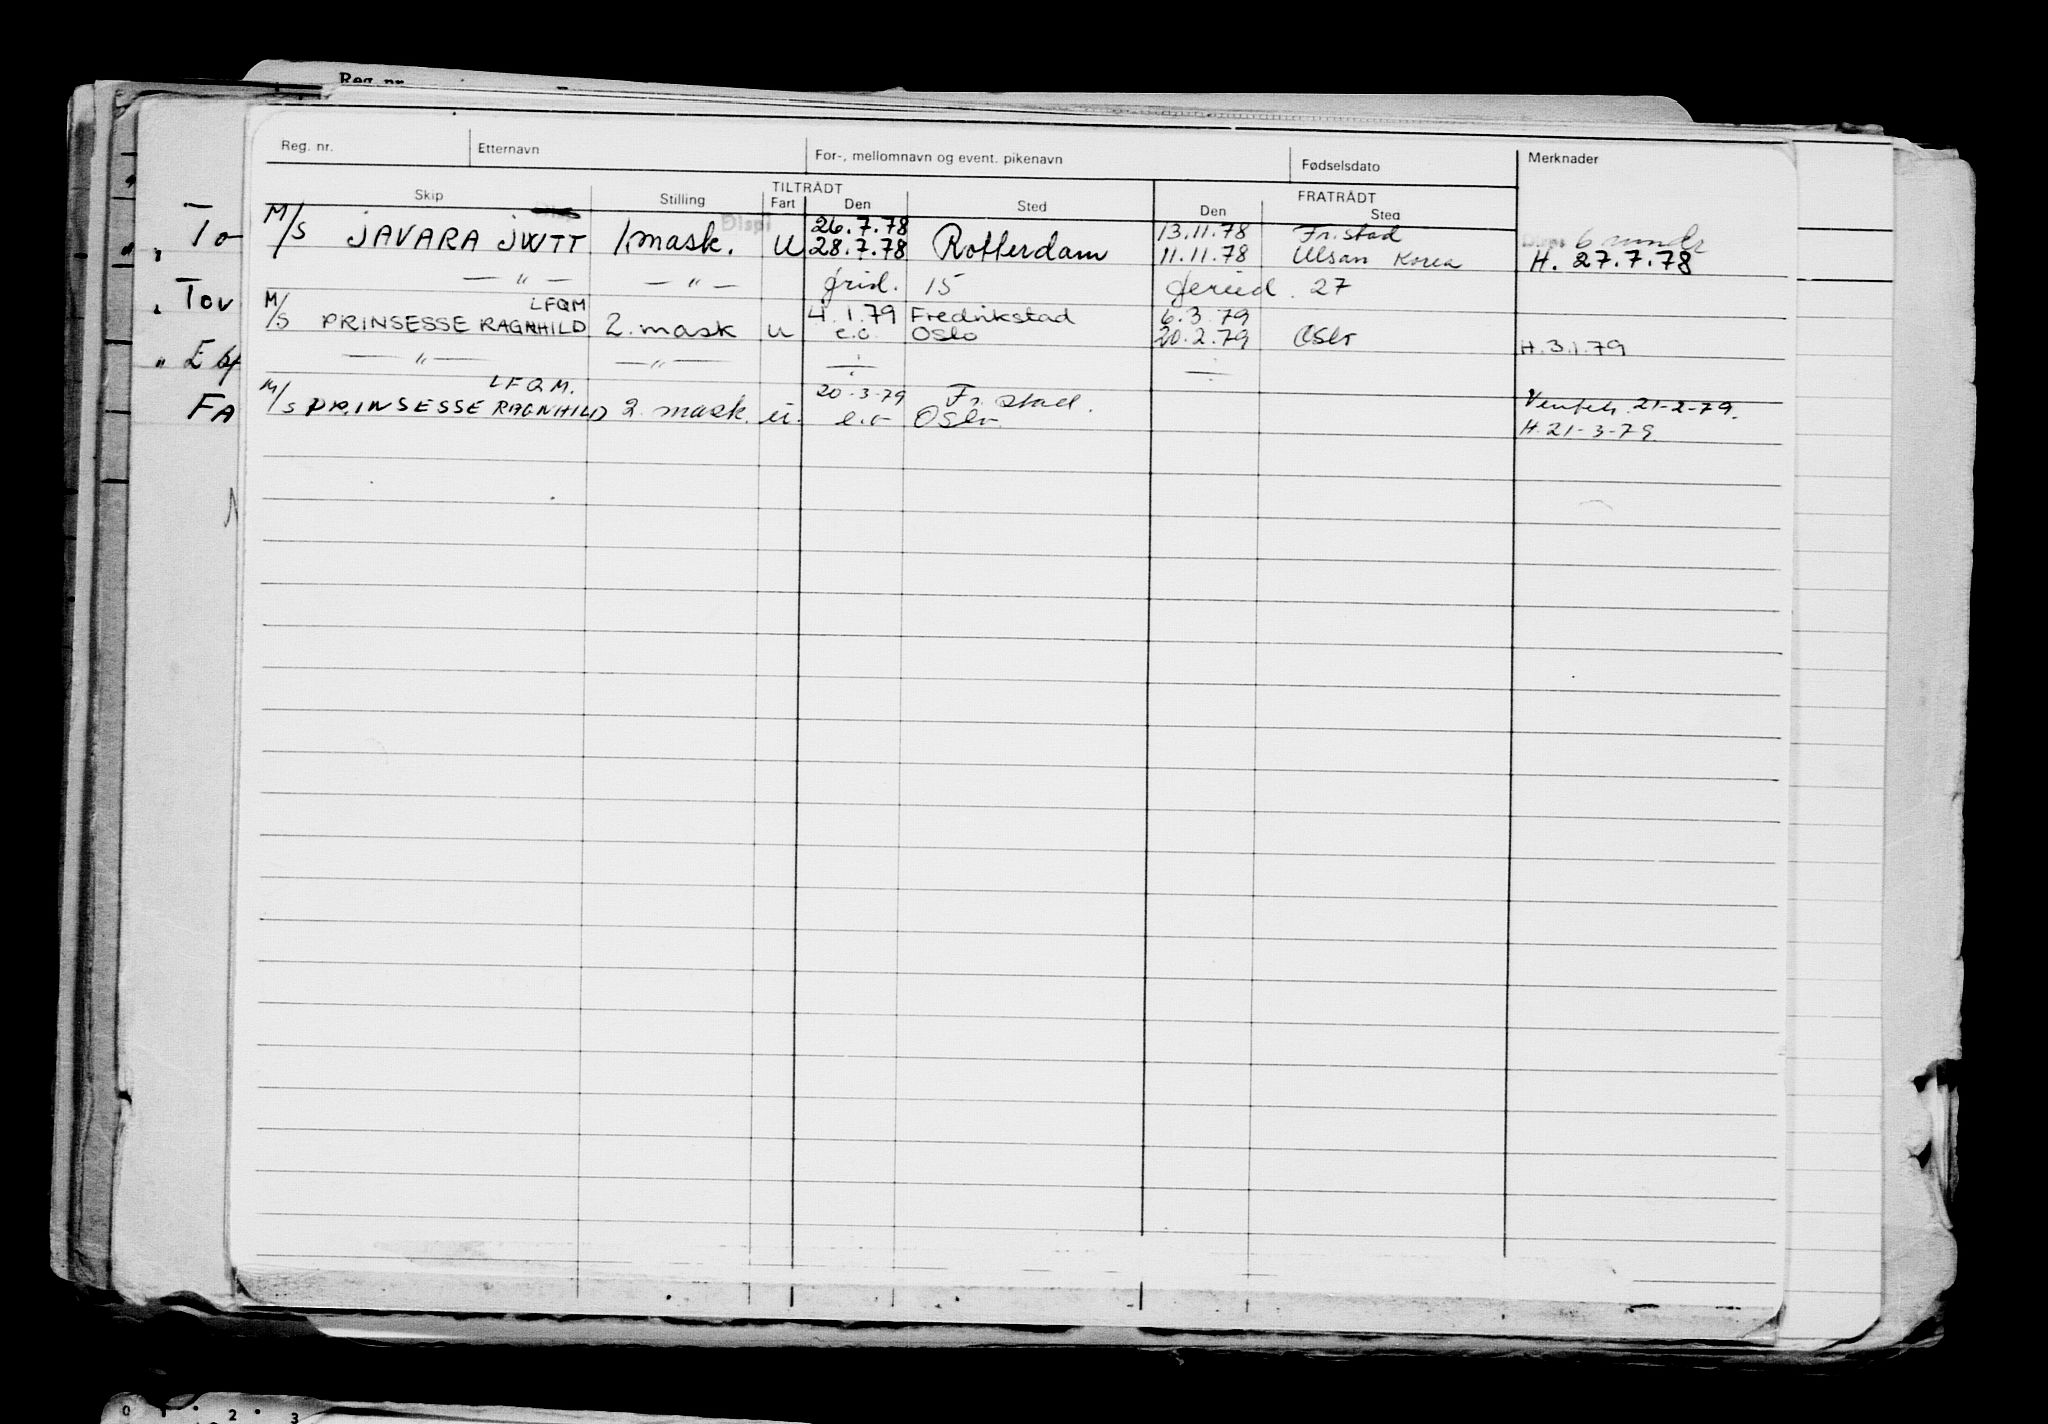 Reg. nr.
Reg. nr. Etternavn For-, mellomnavn og event. pikenavn Fødselsdato Merknader
TILTRÅDT FRATRÅDT
Skip Stilling Fart Den Sted Den Sted
26.7.78 13.11.78 Fr.stad 6 mndr
To M/S JAVARA JWTT 1 mask. U 28.7.78 Rotterdam 11.11.78 Ulsan Korea H. 27.7.78
— " — — " — 15 27
Tov M/S LFQM 4.1.79 Fredrikstad 6.3.79
PRINSESSE RAGNHILD 2. mask U e.o. Oslo 20.2.79 Oslo H.3.1.79
— " — — " — ÷ ÷
LFQM. 20-3-79 Fr.stad. 21-2-79.
FA M/S PRINSESSE RAGNHILD 2. mask. U. e.o Oslo H.21-3-79.
0 1 2 3